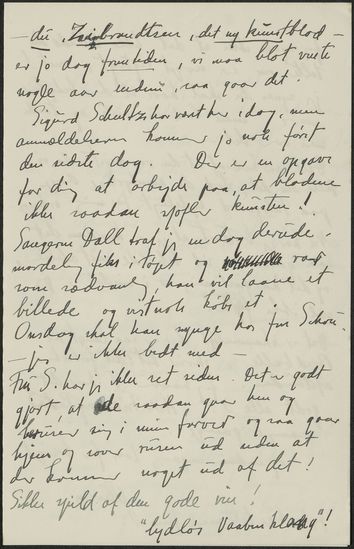 — du, Isibrandtsen, det ny kunstblad —
er jo dog fremtiden, vi maa blot vente
nogle aar endnu, saa gaar det.
Sigurd Schultz har været her idag, men
anmeldelsern kommer jo nok først
den sidste dag. Der er en opgave
for dig at arbejde paa, at bladene
ikke saadan sjofler kunsten!
Sangeren Dall traf jeg en dag derude,
mordelig fiks i tøjet og rar
som sædvanlig, han vil laane et
billede og vistnok købe et.
Onsdag skal han synge hos fru Schou.
— jeg er ikke bedt med —
Fru S. har jeg ikke set siden. Det er godt
gjort, at de saadan gaar hen og
ruser sig i min forvent og saa gaar
hjem og sover rusen ud uden at
der kommer noget ud af det!
Sikke spild af den gode vin!
"lydløs Vaabenklang"!